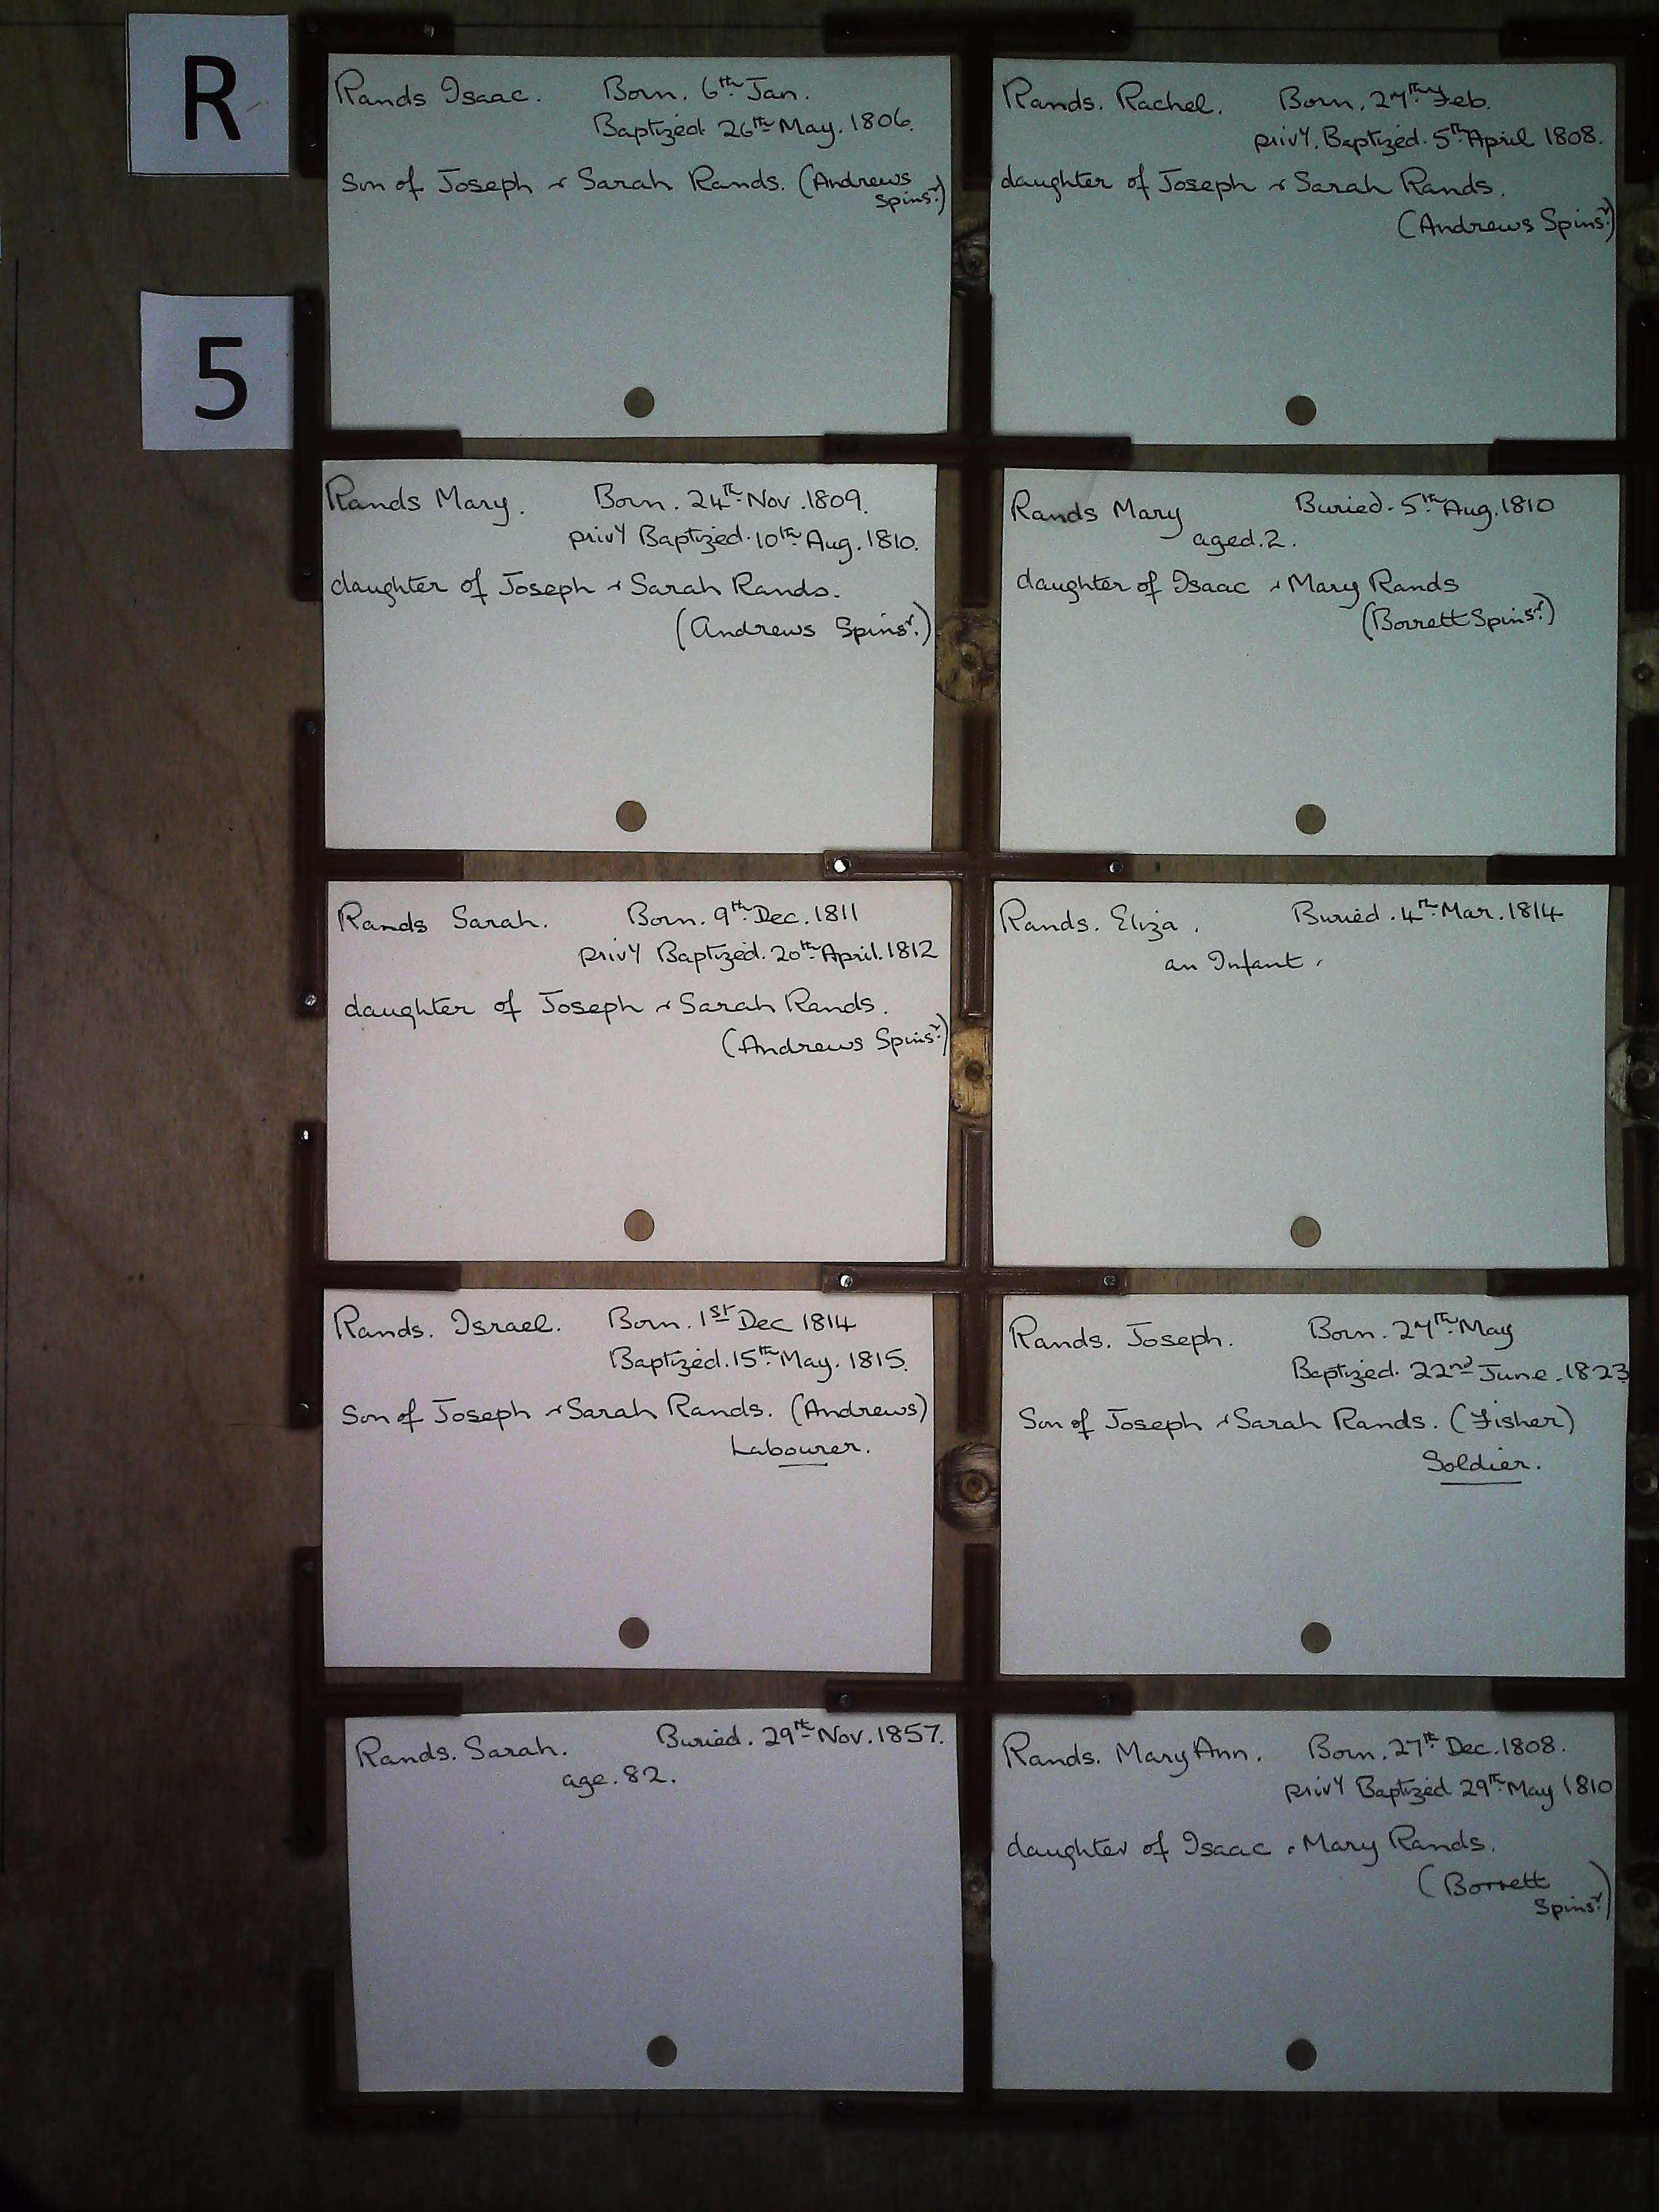 R
5
Rands Isaac. Born. 6th Jan.
Baptized 26th May. 1806.
Son of Joseph & Sarah Rands. (Andrews
Spinsr.)
Rands. Rachel. Born. 27th Feb.
privy. Baptized. 5th April 1808.
daughter of Joseph & Sarah Rands.
(Andrews Spinsr.)
Rands Mary. Born. 24th Nov. 1809.
privy Baptized. 10th Aug. 1810.
daughter of Joseph & Sarah Rands.
(Andrews Spinsr.)
Rands Mary Buried. 5th Aug. 1810
aged. 2.
daughter of Isaac & Mary Rands
(Borrett Spinsr.)
Rands Sarah. Born. 9th Dec. 1811
privy Baptized. 20th April. 1812
daughter of Joseph & Sarah Rands.
(Andrews Spinsr.)
Rands. Eliza. Buried. 4th Mar. 1814
an Infant.
Rands. Israel. Born. 1st Dec 1814
Baptized. 15th May. 1815.
Son of Joseph & Sarah Rands. (Andrews)
Labourer.
Rands. Joseph. Born. 27th May
Baptized. 22nd June. 1823
Son of Joseph & Sarah Rands. (Fisher)
Soldier.
Rands. Sarah. Buried. 29th Nov. 1857.
age. 82.
Rands. Mary Ann. Born. 27th Dec. 1808.
privy Baptized 29th May 1810
daughter of Isaac & Mary Rands.
(Borrett
Spinsr.)